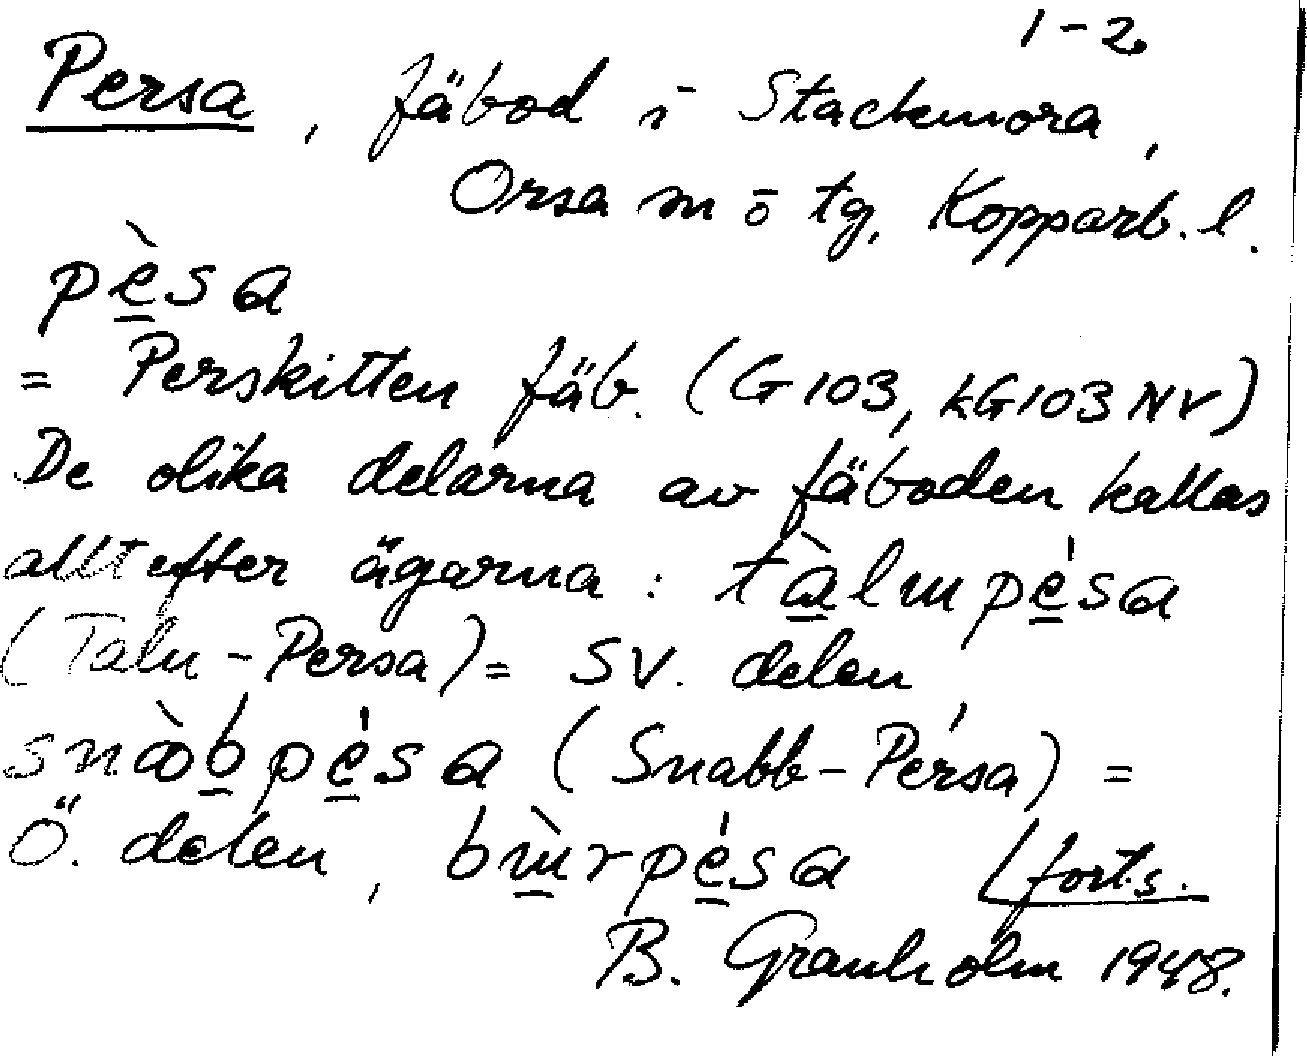 1-2
Persa, fäbod i Stackmora,
Orsa sn o tg, Kopparb. l.
pè̲sa
= Perskitten fäb. (G103, kG103NV)
De olika delarna av fäboden kallas
allt efter ägarna: tà̲lɯpé̲sa
(Talu-Persa) = SV. delen,
snàb̲pé̲sa (Snabb-Pérsa) =
Ö. delen, bɯ̲̀rpé̲sa Lforts.
B. Granholm 1948.